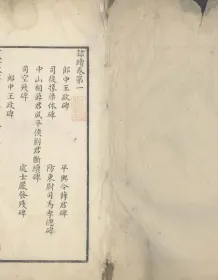 隸續卷第一
郎中王政碑
平輿令薛君碑
司徒掾梁休碑
防東尉司馬季德碑
中山相薛君成平侯劉君斷續碑
司空殘碑
處士嚴發殘碑
郎中王政碑